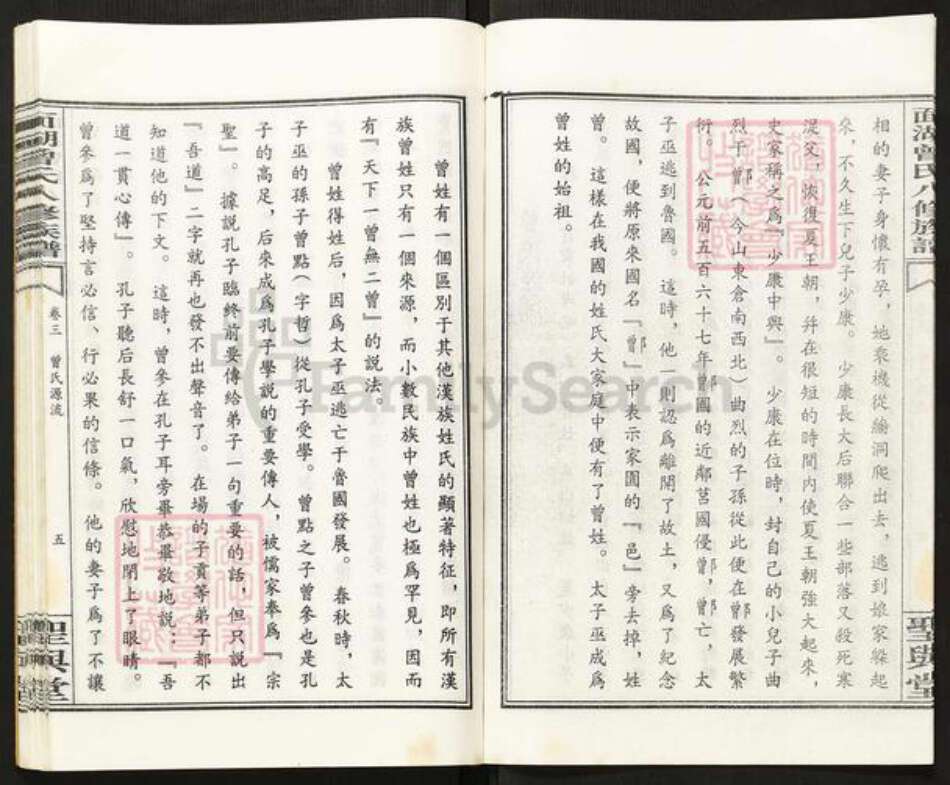 面湖曾氏八修族譜
聖與堂
相的妻子身懷有孕，她乘機從繪洞爬出去，逃到娘家躲起
來，不久生下兒子少康。少康長大后聯合一些部落又殺死寒
浞父，恢復夏王朝，并在很短的時間內使夏王朝強大起來，
史家稱之爲『少康中興』。少康在位時，封自己的小兒子曲
烈于鄫（今山東倉南西北）曲烈的子孫從此便在鄫發展繁
衍。公元前五百六十七年曾國的近鄰莒國侵鄫，鄫亡，太
子巫逃到魯國。這時，他一則認爲離開了故土，又爲了紀念
故國，便將原來國名『鄫』中表示家園的『邑』旁去掉，姓
曾。這樣在我國的姓氏大家庭中便有了曾姓。太子巫成爲
曾姓的始祖。
曾姓有一個區別于其他漢族姓氏的顯著特征，即所有漢
族曾姓只有一個來源，而小數民族中曾姓也極爲罕見，因而
有『天下一曾無二曾』的說法。
曾姓得姓后，因爲太子巫逃亡于魯國發展。春秋時，太
子巫的孫子曾點（字哲）從孔子受學。曾點之子曾參也是孔
子的高足，后來成爲孔子學說的重要傳人，被儒家奉爲『宗
聖』。據說孔子臨終前要傳給弟子一句重要的話，但只說出
『吾道』二字就再也發不出聲音了。在場的子貢等弟子都不
知道他的下文。這時，曾參在孔子耳旁畢恭畢敬地說：『吾
道一貫心傳』。孔子聽后長舒一口氣，欣慰地閉上了眼睛。
曾參爲了堅持言必信、行必果的信條。他的妻子爲了不讓
面湖曾氏八修族譜
卷三 曾氏源流
五
聖與堂
FamilySearch